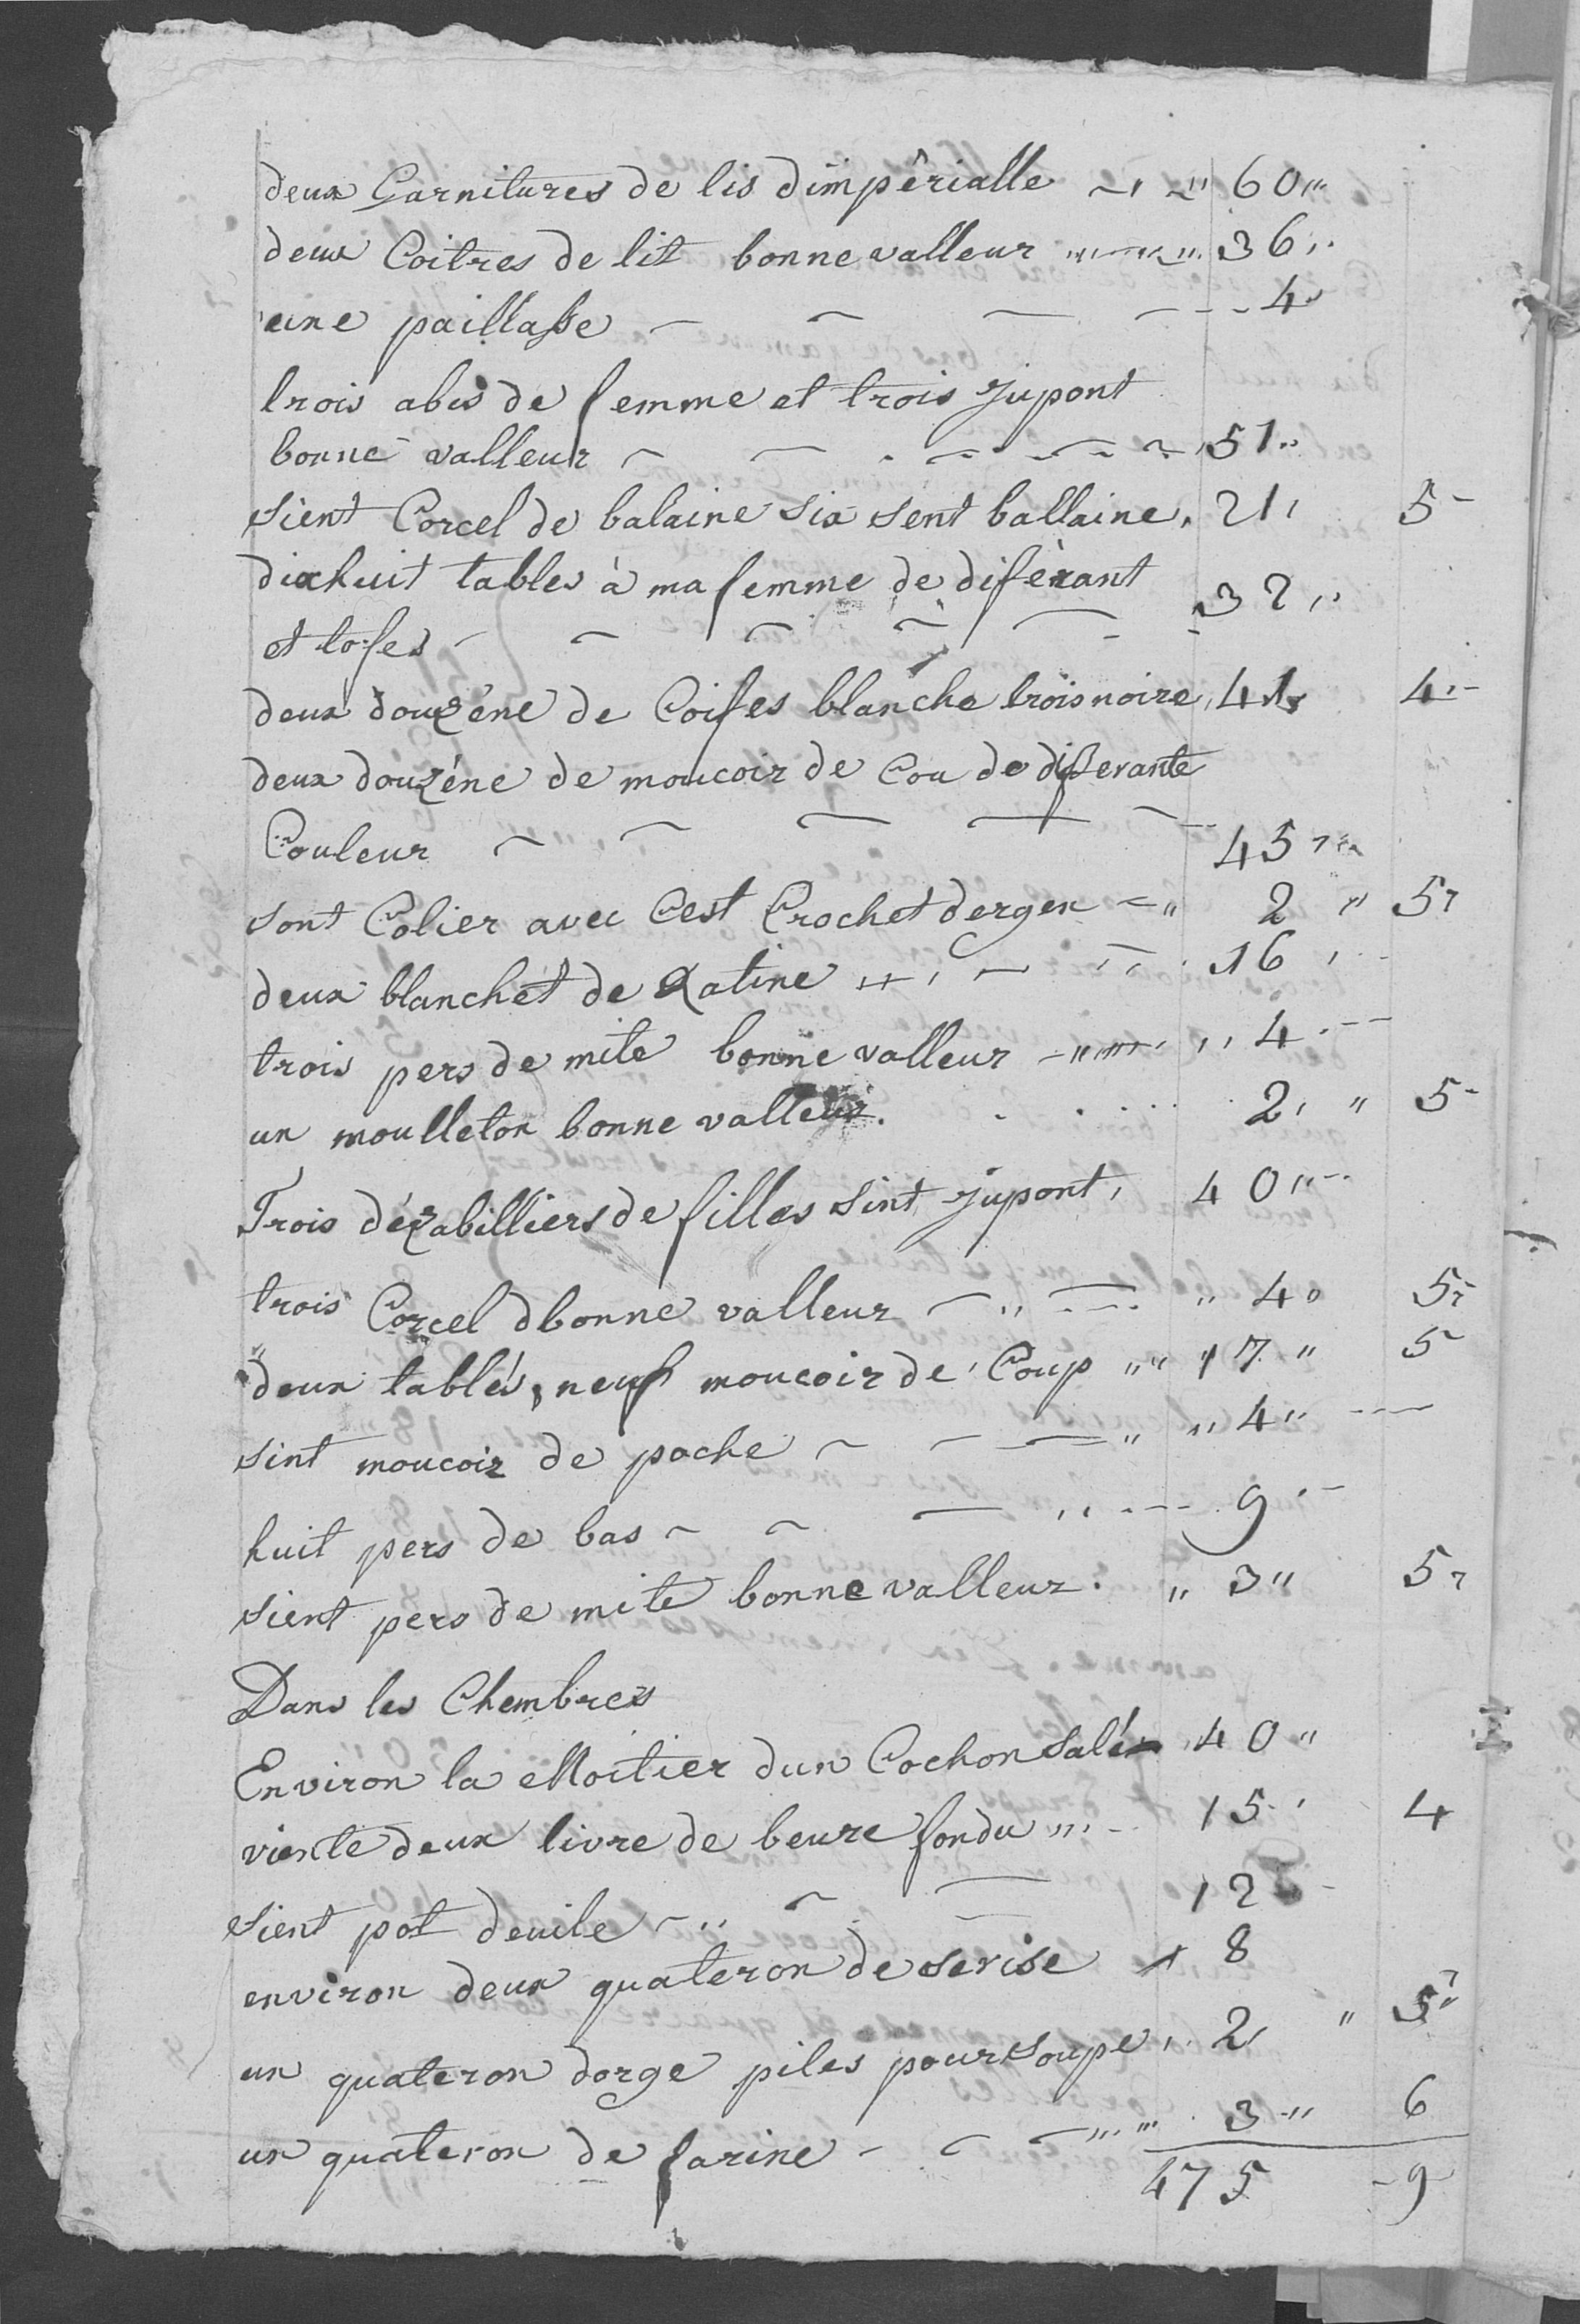 deux Garnitures de lis dimpêrialle 60
deux Coitres de lit bonne valleur 36
une paillasse 4
trois abis de femme et trois jupont
bonne valleur 51
sient Corcel de balaine six sent ballaine. 21 5
dixhuit tables à ma femme de diférant
et tofes 32
deux douzéne de Coifes blanche troisnoire 41 4
deux douzéne de moucoir de Cou de diferante
Couleur 45
sont Colier avec Cest Crochet dergen 2 5
deux blanchet de Ratine 16
trois pers de mite bonne valleur 4
un moulleton bonne valleur. 2 5
Trois dézabilliers de filles Sint jupont, 40
trois Corcel dbonne valleur 4 5
deux tablés, neuf moucoir de Coup 17 5
sint moucoir de poche 4
huit pers de bas 9
sient pers de mite bonne valleur. 3 5
Dans les Chembres
Environ la Moitier dun Cochon Salé 40
viente deux livre de beure fondu 15 4
sient pot deuile 12
environ deux quateron de serise 8
un quateron dorge piles pour soupe 2 5
un quateron de farine 3 6
475 9